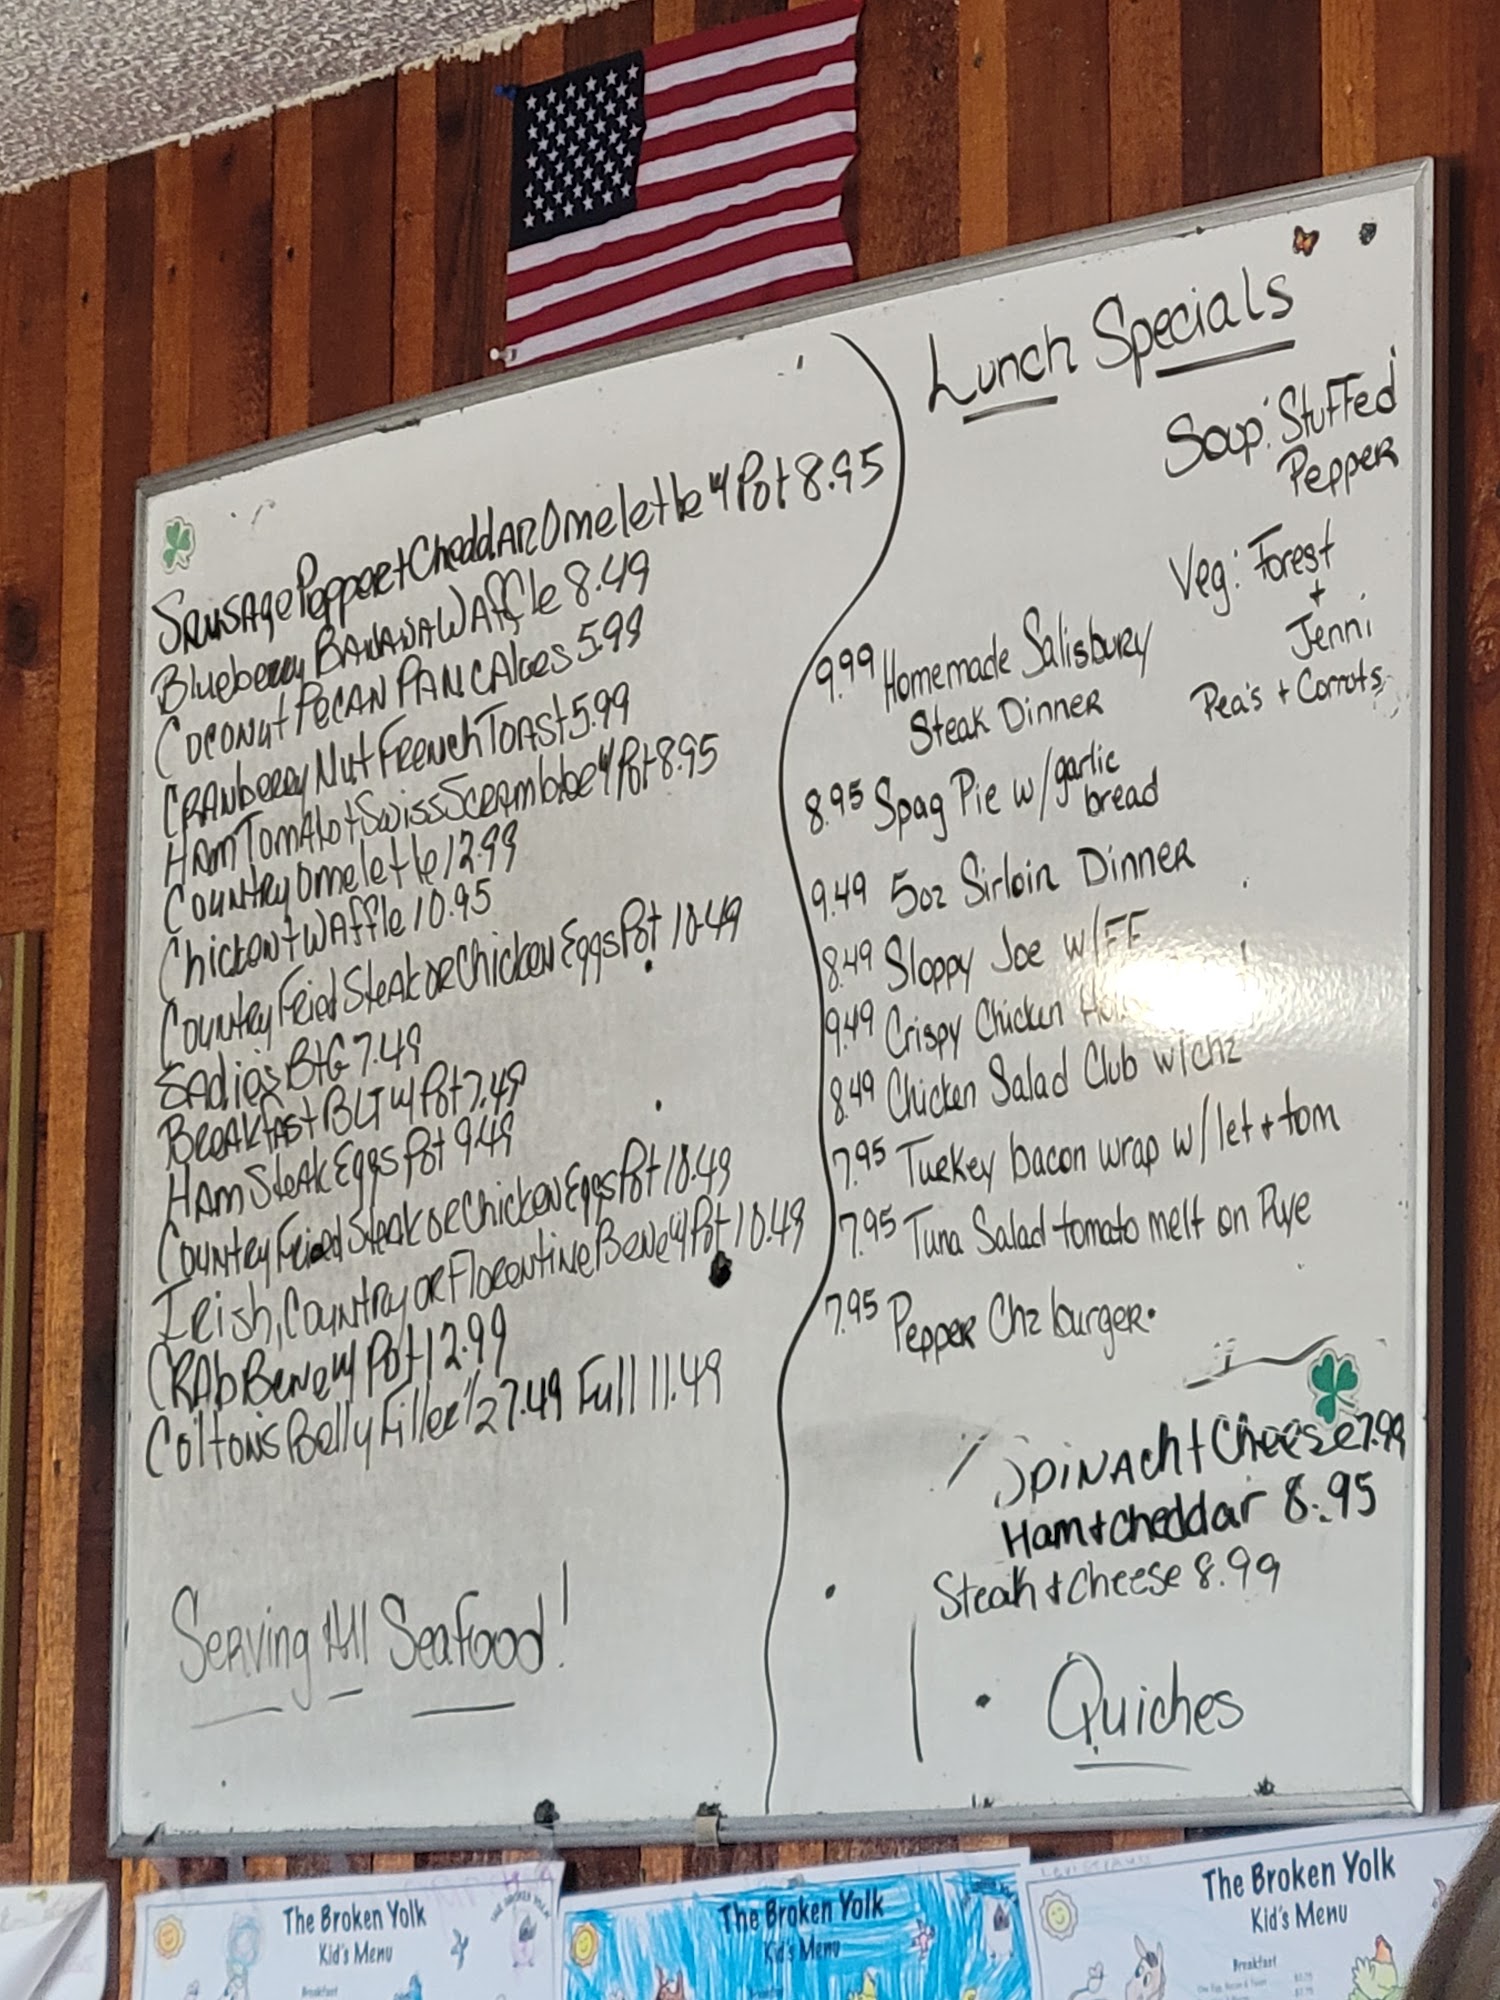 Sausage Pepper + Cheddar Omelette w/ Pot 8.95
Blueberry Banana Waffle 8.49
Coconut Pecan Pancakes 5.99
Cranberry Nut French Toast 5.99
Ham Tomato + Swiss Scramble w/ Pot 8.95
Country Omelette 12.99
Chicken + Waffle 10.95
Country Fried Steak or Chicken Eggs Pot 10.49
Sadie's B+G 7.49
Breakfast BLT w/ Pot 7.49
Ham Steak Eggs Pot 9.49
Country Fried Steak or Chicken Eggs Pot 10.49
Irish, Country or Florentine Bene w/ Pot 10.49
CRAb Bene w/ Pot 12.99
Colton's Belly Filler 1/2 7.49 Full 11.49
Serving All Seafood!
Lunch Specials
Soup: Stuffed
Pepper
Veg: Forest
+
Jenni
Pea's + Corrots
9.99 Homemade Salisbury
Steak Dinner
8.95 Spag Pie w/ garlic
bread
9.49 5oz Sirloin Dinner
8.49 Sloppy Joe w/FF
9.49 Crispy Chicken
8.49 Chicken Salad Club w/chz
7.95 Turkey bacon wrap w/ let + tom
7.95 Tuna Salad tomato melt on Rye
7.95 Pepper Chz burger.
Spinach + Cheese 7.99
Ham + cheddar 8.95
Steak + cheese 8.99
Quiches
The Broken Yolk
Kid's Menu
Breakfast
The Broken Yolk
Kid's Menu
The Broken Yolk
Kid's Menu
Breakfast